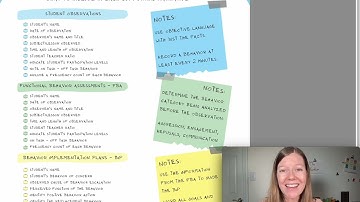 STUDENT OBSERVATIONS
STUDENT'S NAME
DATE OF OBSERVATION
OBSERVER'S NAME AND TITLE
SUBJECT/LESSON OBSERVED
TIME AND LENGTH OF OBSERVATION
STUDENT TEACHER RATIO
ON TASK - OFF TASK BEHAVIOR
FUNCTIONAL BEHAVIOR ASSESSMENTS - FBA
STUDENT'S NAME
DATE OF OBSERVATION
OBSERVER'S NAME AND TITLE
SUBJECT/LESSON OBSERVED
TIME AND LENGTH OF OBSERVATION
STUDENT TEACHER RATIO
ON TASK - OFF TASK BEHAVIOR
FREQUENCY COUNT OF EACH BEHAVIOR
BEHAVIOR IMPLEMENTATION PLANS - BIP
STUDENT'S NAME
STUDENT'S BEHAVIOR OF CONCERN
OBSERVED CAUSE OF BEHAVIOR ESCALATION
PERCEIVED FUNCTION OF THE BEHAVIOR
NOTES:
USE OBJECTIVE LANGUAGE
WITH JUST THE FACTS.
RECORD A BEHAVIOR AT
LEAST EVERY 2 MINUTES
NOTES:
DETERMINE THE BEHAVIOR
CATEGORY BEING ANALYZED
BEFORE THE OBSERVATION
AGGRESSION, ENGAGEMENT,
REFUSALS, COMMUNICATION
NOTES:
USE THE INFORMATION
FROM THE FBA TO MAKE
THE BIP